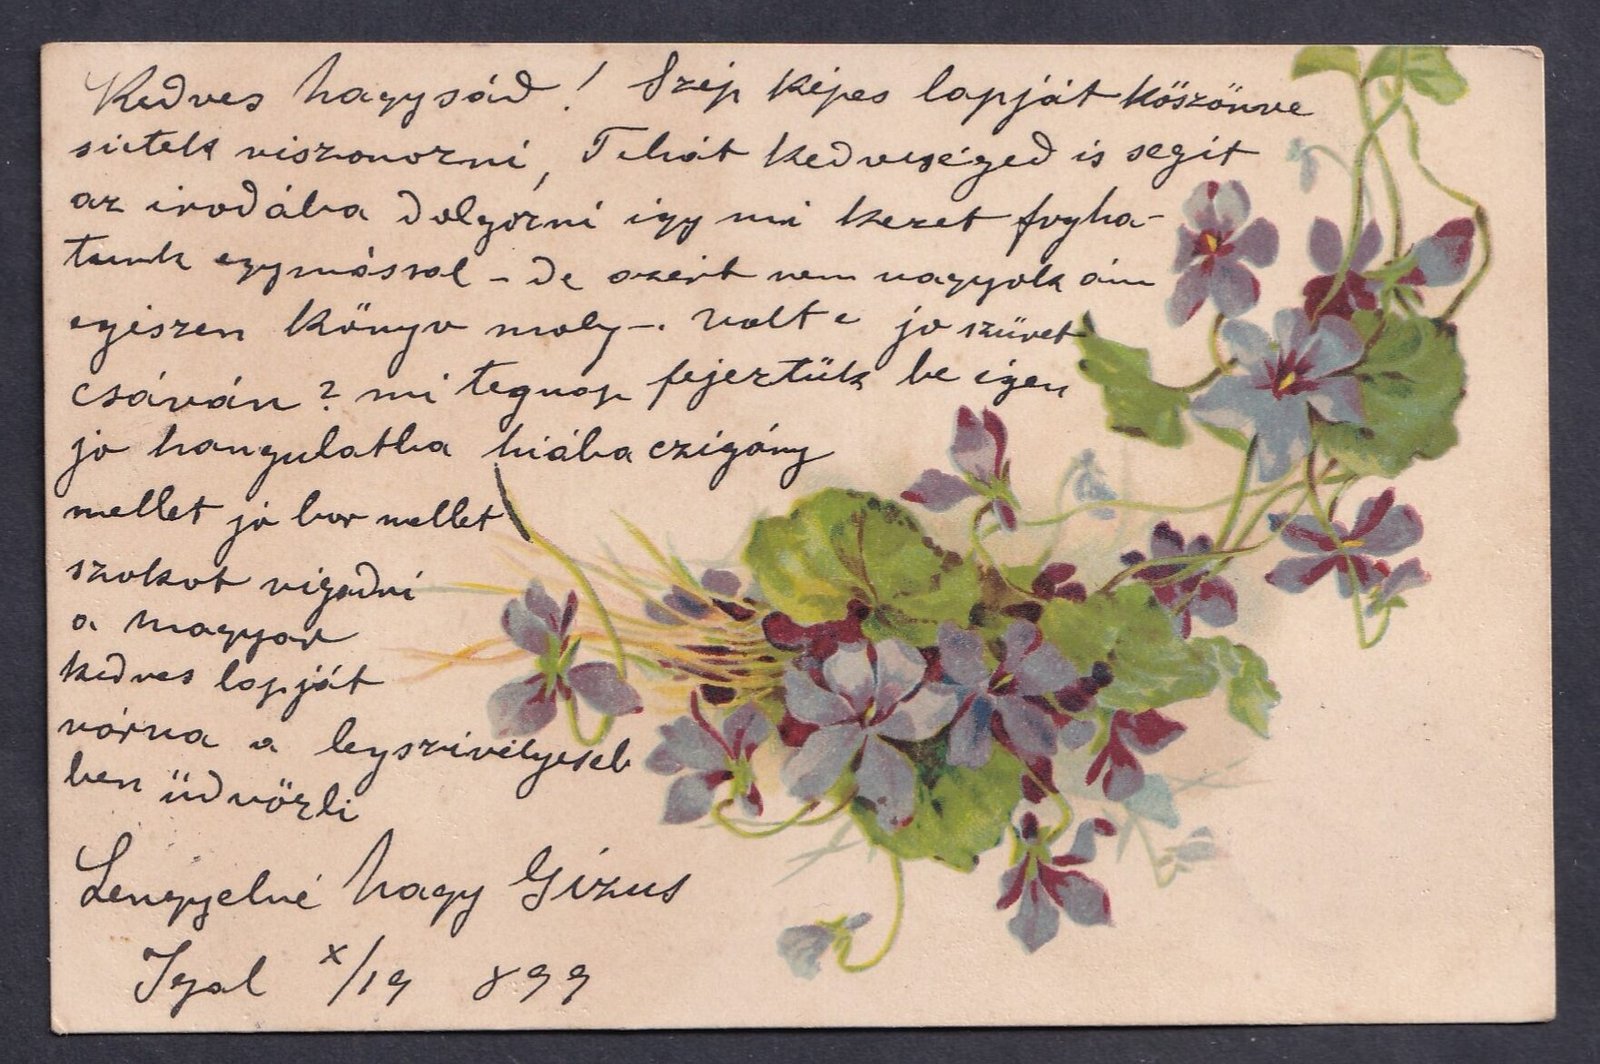 Kedves Nagysád! Szép képes lapját köszönve
sietek viszonozni, Tehát kedveséged is segit
az irodába dolgozni igy mi kezet fogha-
tunk egymással - de azért nem vagyok ám
egiszen könyv moly -. volt e jo szüret
csáván? mi tegnap fejeztük be igen
jo hangulatba hiába czigány
mellet jó bor mellet
szokot vigadni
a magyar
kedves lapját
várna a legszivélyeseb
ben üdvözli
Lengyelné Nagy Gizus
Igal X/19 899